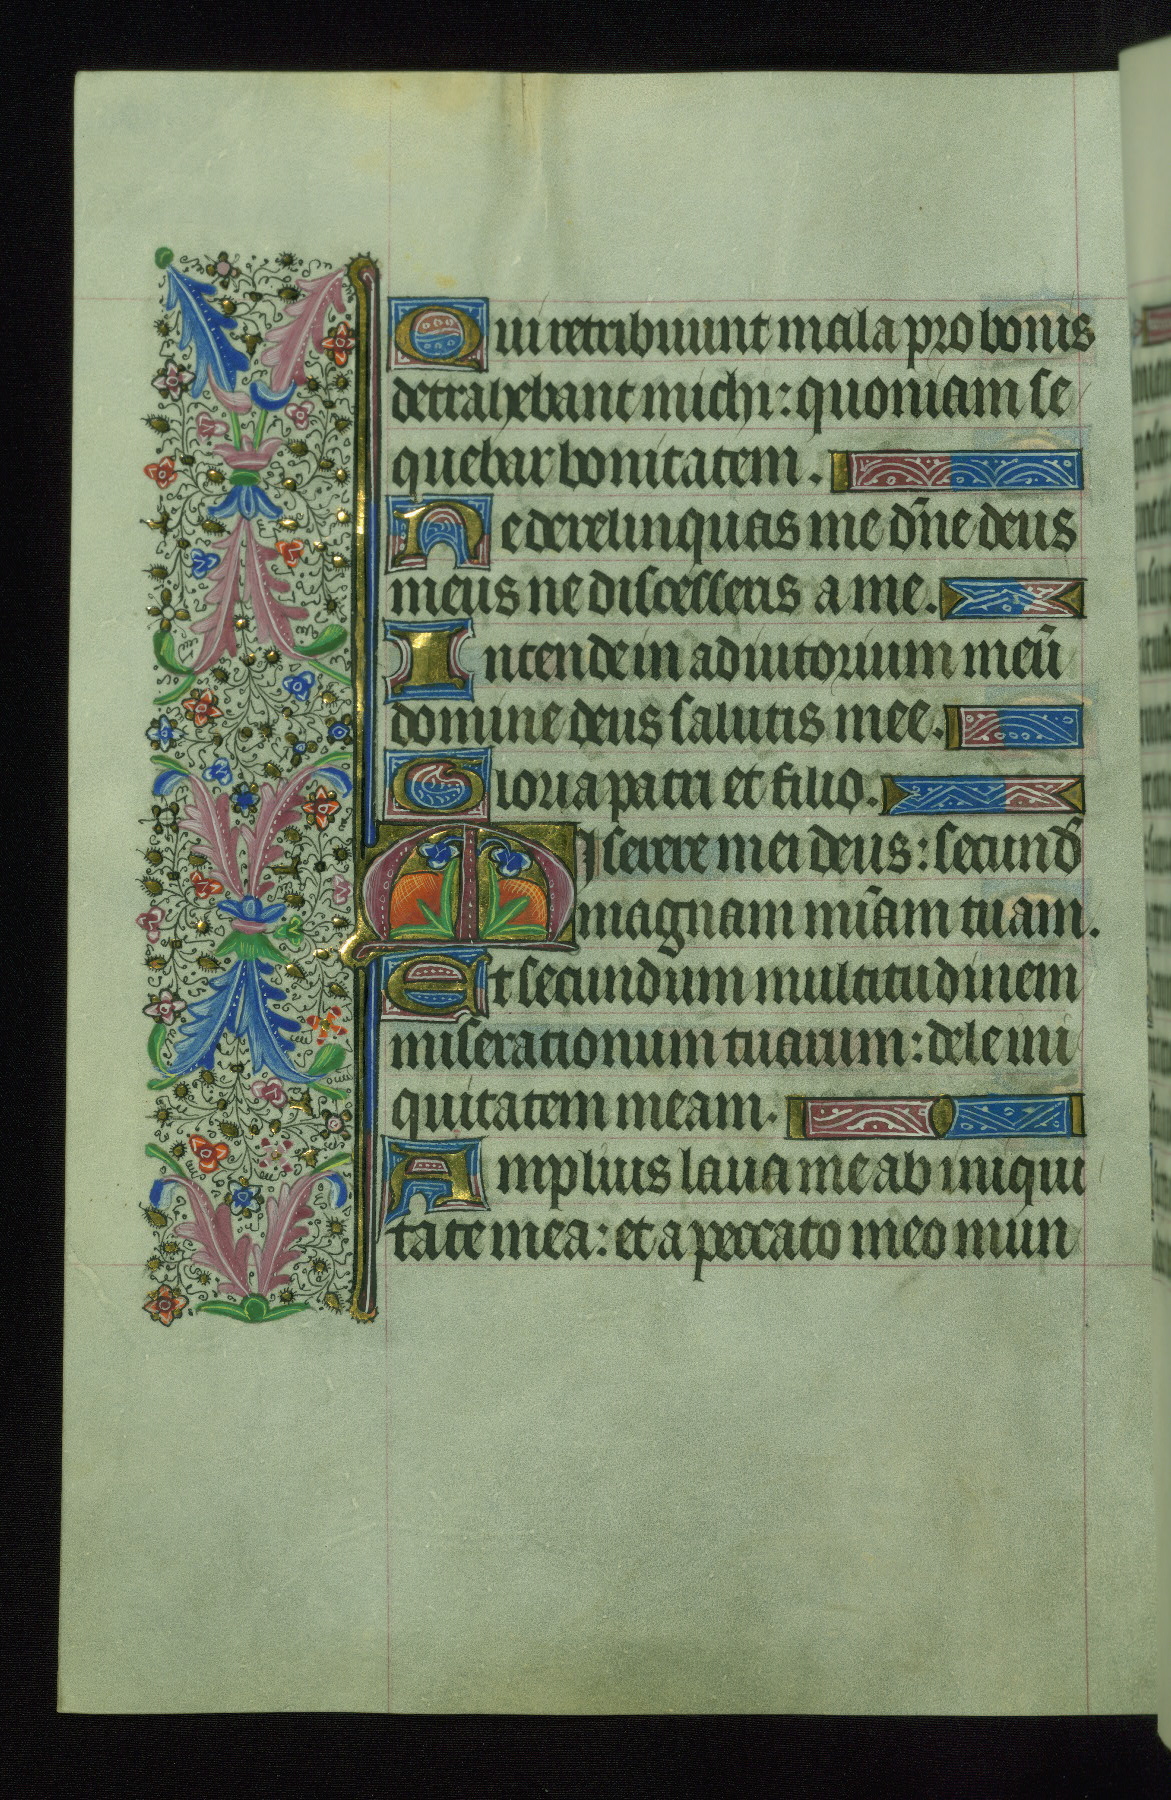 Qui retribuunt mala pro bonis
detrahebant michi: quoniam se
quebar bonitatem.
Ne derelinquas me dn̄e deus
meus ne discesseris a me.
Intende in adiutorium meū
domine deus salutis mee.
Gloria patri et filio.
Miserere mei deus: secund̄
magnam mīam tuam.
Et secundum multitudinem
miserationum tuarum: dele ini
quitatem meam.
Amplius laua me ab iniqui
tate mea: et a peccato meo mun